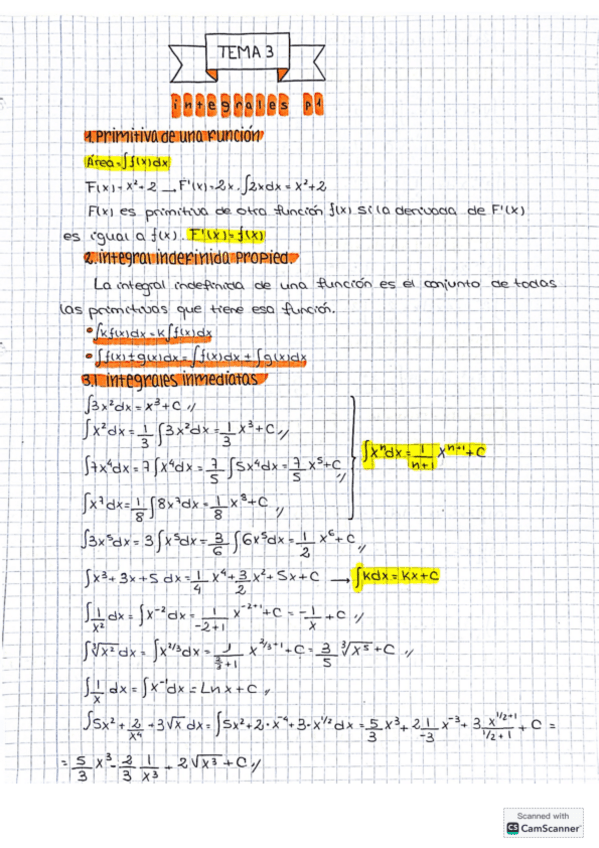 TEMA 3
integrales p1
1. Primitiva de una función
Área = ∫f(x)dx
F(x) = x² + 2 → F'(x) = 2x. ∫2xdx = x² + 2
F(x) es primitiva de otra función f(x) si la derivada de F'(x)
es igual a f(x). F'(x) = f(x)
2. integral indefinida propied.
La integral indefinida de una función es el conjunto de todas
las primitivas que tiene esa función.
• ∫kf(x)dx = k∫f(x)dx
• ∫f(x) ± g(x)dx = ∫f(x)dx ± ∫g(x)dx
3.1 integrales inmediatas
∫3x²dx = x³ + C //
∫x²dx = 1/3 ∫3x²dx = 1/3 x³ + C //
∫7x⁴dx = 7∫x⁴dx = 7/5 ∫5x⁴dx = 7/5 x⁵ + C //
∫xⁿdx = 1/(n+1) xⁿ⁺¹ + C
∫x⁷dx = 1/8 ∫8x⁷dx = 1/8 x⁸ + C //
∫3x⁵dx = 3∫x⁵dx = 3/6 ∫6x⁵dx = 1/2 x⁶ + C //
∫x³ + 3x + 5 dx = 1/4 x⁴ + 3/2 x² + 5x + C → ∫kdx = kx + C
∫1/x² dx = ∫x⁻²dx = 1/(-2+1) x⁻²⁺¹ + C = -1/x + C //
∫∛x² dx = ∫x^(2/3)dx = 1/(2/3+1) x^(2/3+1) + C = 3/5 ∛x⁵ + C //
∫1/x dx = ∫x⁻¹dx = Ln x + C //
∫5x² + 2/x⁴ + 3√x dx = ∫5x² + 2·x⁻⁴ + 3·x^(1/2) dx = 5/3 x³ + 2 1/-3 x⁻³ + 3 x^(1/2+1)/(1/2+1) + C =
= 5/3 x³ - 2/3 1/x³ + 2√x³ + C //
Scanned with
CS CamScanner